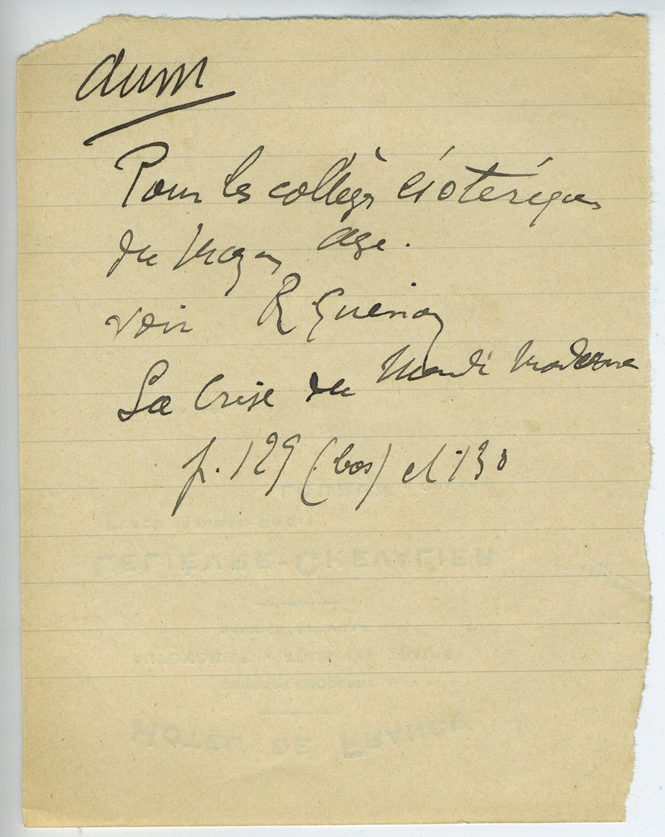 aum
Pour les collèges ésotériques
du Moyen age.
voir R Guénon
La Crise du Monde Moderne
p. 129 (bas) et 130
LELIEVRE-CHEVALIER
HOTEL DE FRANCE